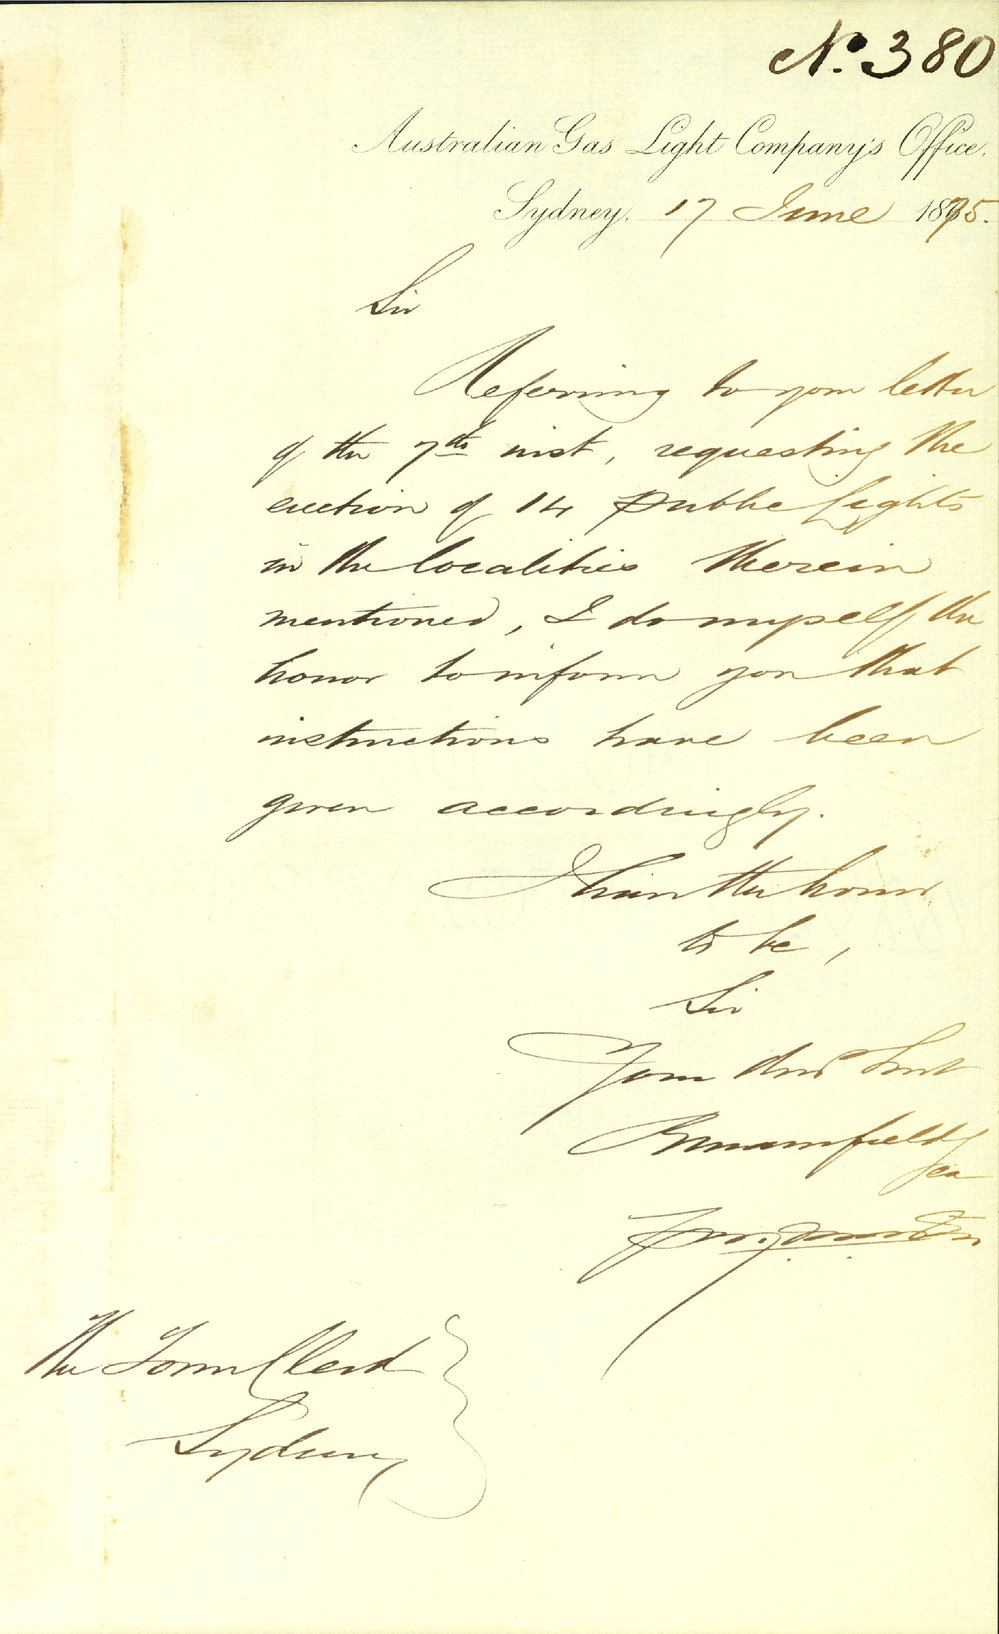 No. 380
Australian Gas Light Company's Office.
Sydney. 17 June 1875.
Sir
Referring to your letter
of the 7th inst, requesting the
erection of 14 public lights
in the localities therein
mentioned, I do myself the
honor to inform you that
instructions have been
given accordingly.
I have the honor
to be,
Sir
Your
The Town Clerk
Sydney